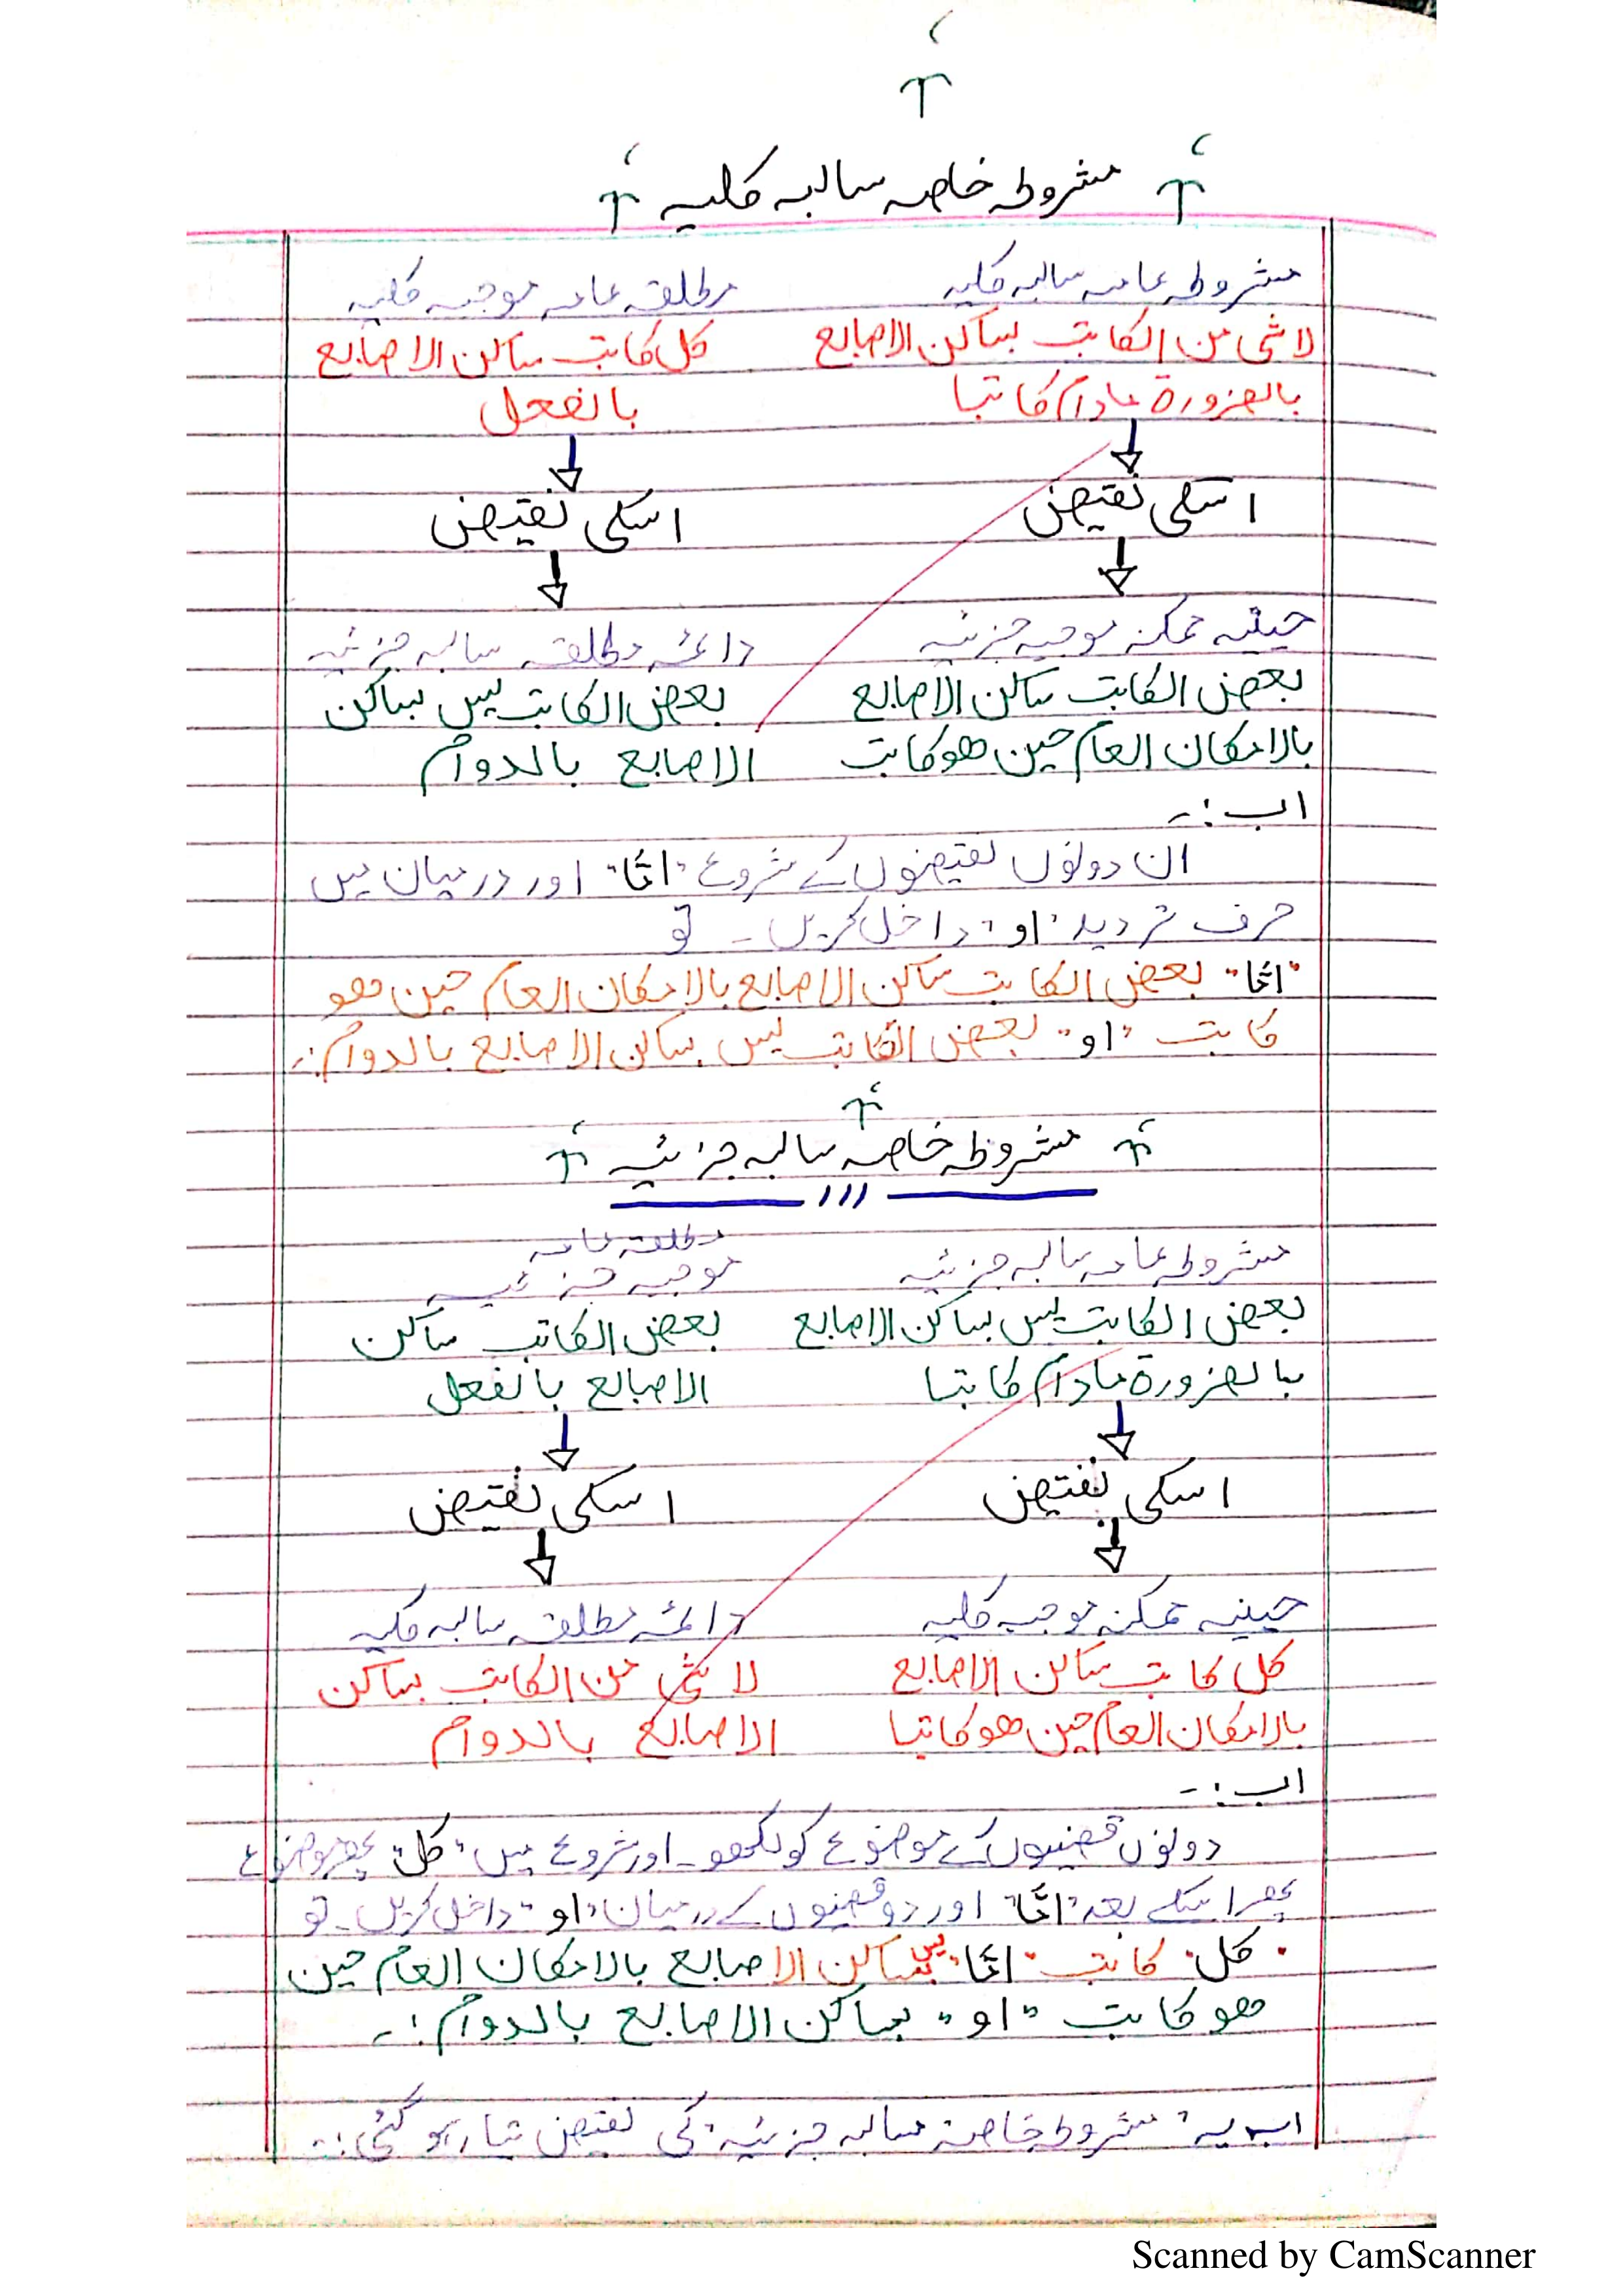 مشروطہ خاصہ سالبہ کلیہ
مشروطہ عامہ سالبہ کلیہ
مطلقہ عامہ موجبہ کلیہ
لا شئ من الکاتب بساکن الاصابع
کل کاتب ساکن الاصابع
بالضرورة مادام کاتبا
بالفعل
اسکی نقیض
اسکی نقیض
حینیہ ممکنہ موجبہ جزئیہ
دائمہ مطلقہ سالبہ جزئیہ
بعض الکاتب ساکن الاصابع
بعض الکاتب لیس بساکن
بالامکان العام حین ھو کاتب
الاصابع بالدوام
اب :۔
ان دونوں نقیضوں کے شروع "امّا" اور درمیان میں
حرف تردید "او" داخل کریں۔ تو
"امّا" بعض الکاتب ساکن الاصابع بالامکان العام حین ھو
کاتب "او" بعض الکاتب لیس بساکن الاصابع بالدوام :۔
مشروطہ خاصہ سالبہ جزئیہ
مشروطہ عامہ سالبہ جزئیہ
مطلقہ عامہ
موجبہ جزئیہ
بعض الکاتب لیس بساکن الاصابع
بعض الکاتب ساکن
بالضرورة مادام کاتبا
الاصابع بالفعل
اسکی نقیض
اسکی نقیض
حینیہ ممکنہ موجبہ کلیہ
دائمہ مطلقہ سالبہ کلیہ
کل کاتب ساکن الاصابع
لا شئ من الکاتب بساکن
بالامکان العام حین ھو کاتبا
الاصابع بالدوام
اب :۔
دونوں قضیوں کے موضوع کو لکھو۔ اور شروع میں "کل" پھر موضوع
پھر اسکے بعد "امّا" اور دو قضیوں کے درمیان "او" داخل کریں۔ تو
"کل" کاتب "امّا" لیس بساکن الاصابع بالامکان العام حین
ھو کاتب "او" بساکن الاصابع بالدوام :۔
اب یہ "مشروطہ خاصہ سالبہ جزئیہ" کی نقیض تیار ہو گئی :۔
Scanned by CamScanner